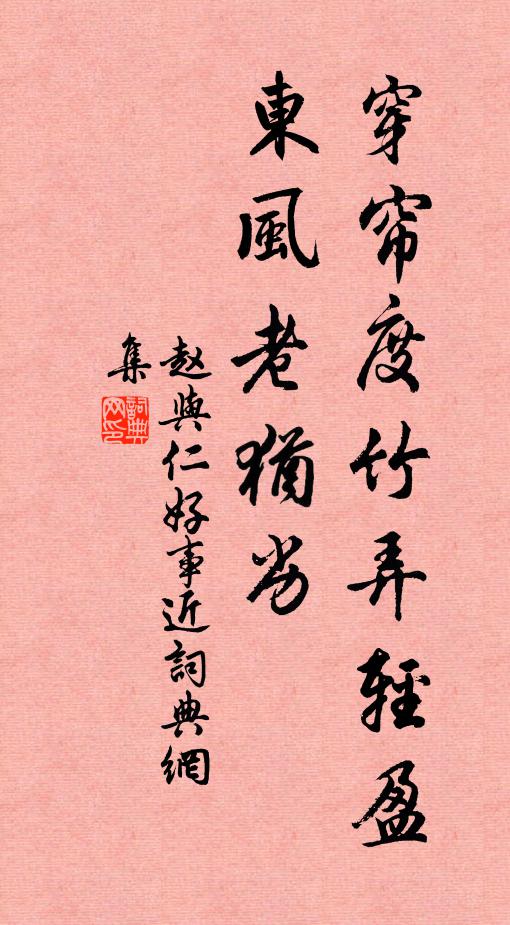 穿帘度竹弄輕盈
東風老猶劣
赵與仁好事近詞典網
集
詞典
网印